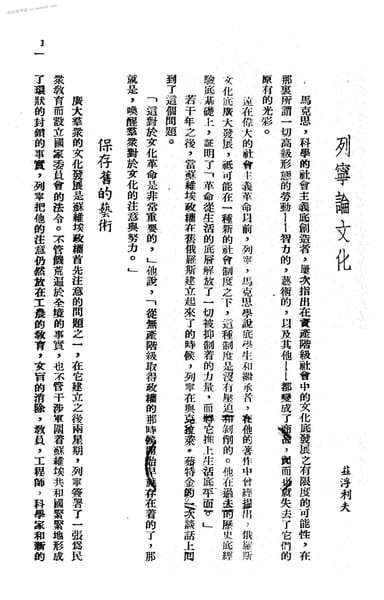 列寧論文化
茲浮利夫
馬克思，科學的社會主義底創造者，屢次指出在資產階級社會中的文化底發展之有限度的可能性，在
那裏所謂一切高級形態的勞動——智力的，藝術的，以及其他——都變成了商品，因而也就失去了它們的
原有的光彩。
遠在偉大的社會主義革命以前，列寧，馬克思學說底學生和繼承者，在他的著作中曾經提出，俄羅斯
文化底廣大發展，祇可能在一種新的社會制度之下，這種制度是沒有壓迫和剝削的。他在過去的歷史底經
驗底基礎上，証明了「革命從生活的底層解放了一切被抑制着的力量，而將它推上生活底平面。」
若干年之後，當蘇維埃政權在舊俄羅斯建立起來了的時候，列寧在與克拉萊·蔡特金的一次談話上囘
到了這個問題。
「這對於文化革命是非常重要的，」他說，「從無產階級取得政權的那時候開始就存在着的了，那
就是，喚醒羣衆對於文化的注意與努力。」
保存舊的藝術
廣大羣衆的文化發展是蘇維埃政權首先注意的問題之一，在它建立之後兩星期，列寧簽署了一張爲民
衆教育而設立國家委員會的法令。不管饑荒遍於全境的事實，也不管干涉軍圍着蘇維埃共和國緊緊地形成
了環狀的封鎖的事實，列寧把他的注意仍然放在工農的敎育，文盲的消除，敎員，工程師，科學家和新的